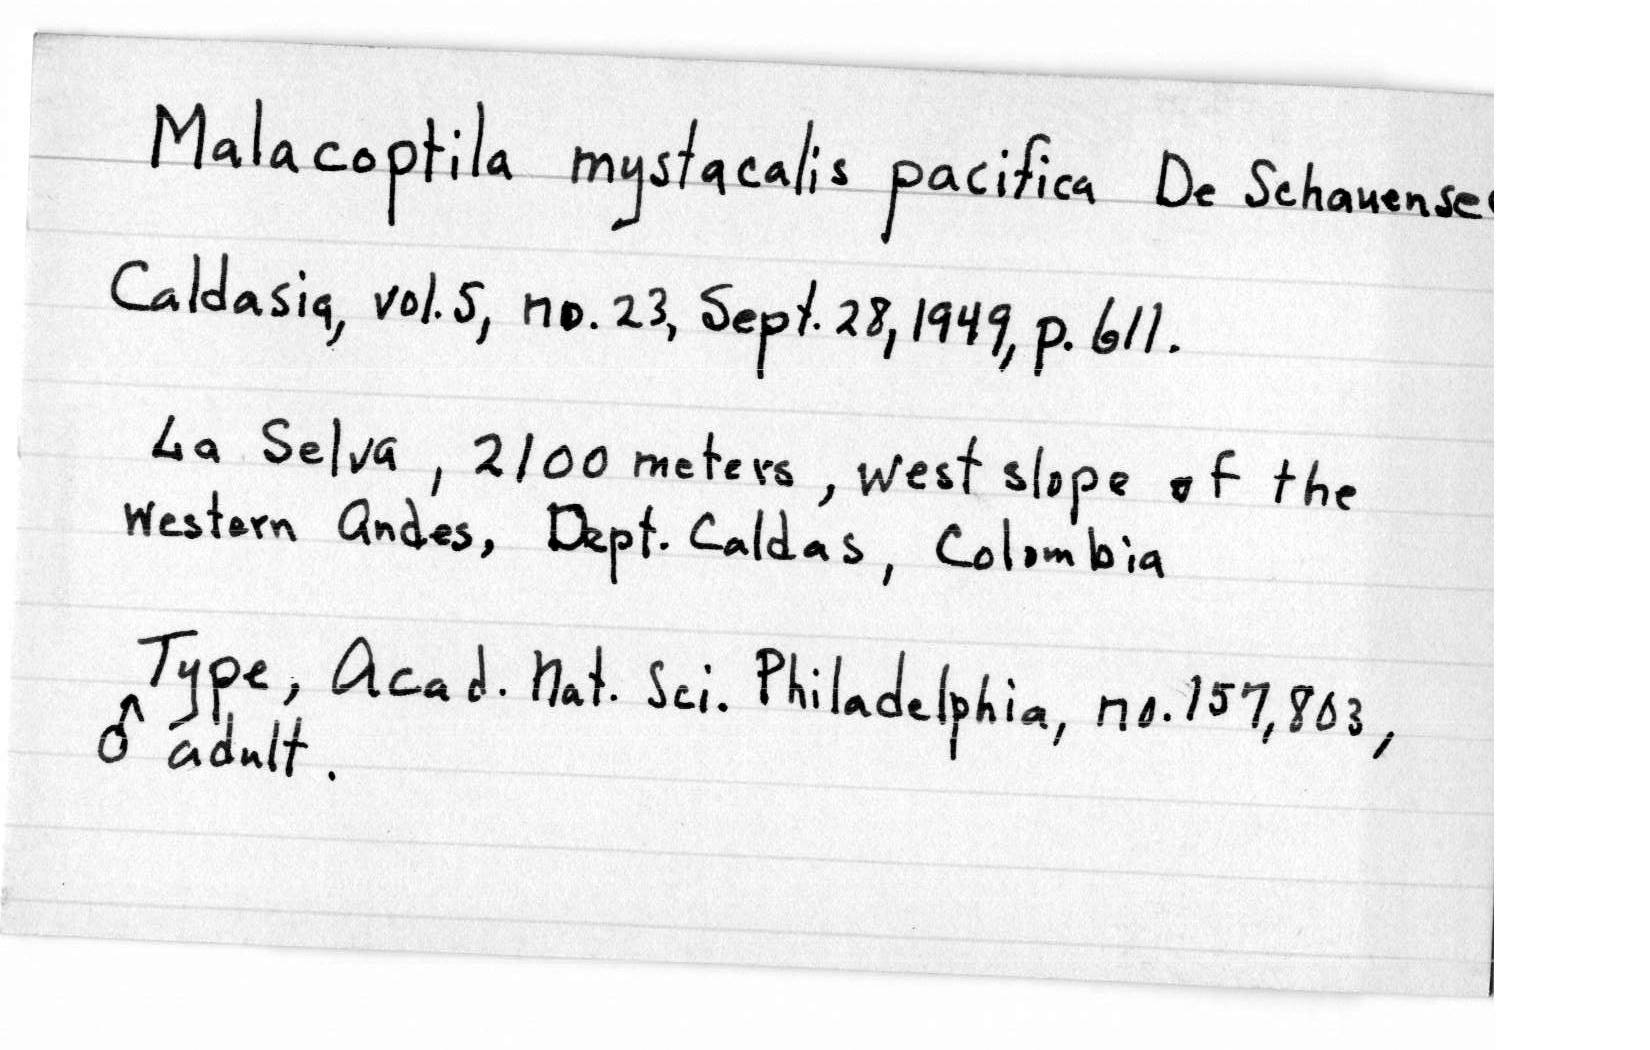 Malacoptila mystacalis pacifica De Schauense
Caldasia, vol. 5, no. 23, Sept. 28, 1949, p. 611.
La Selva, 2100 meters, west slope of the
Western Andes, Dept. Caldas, Colombia
Type, Acad. Nat. Sci. Philadelphia, no. 157,803,
♂ adult.